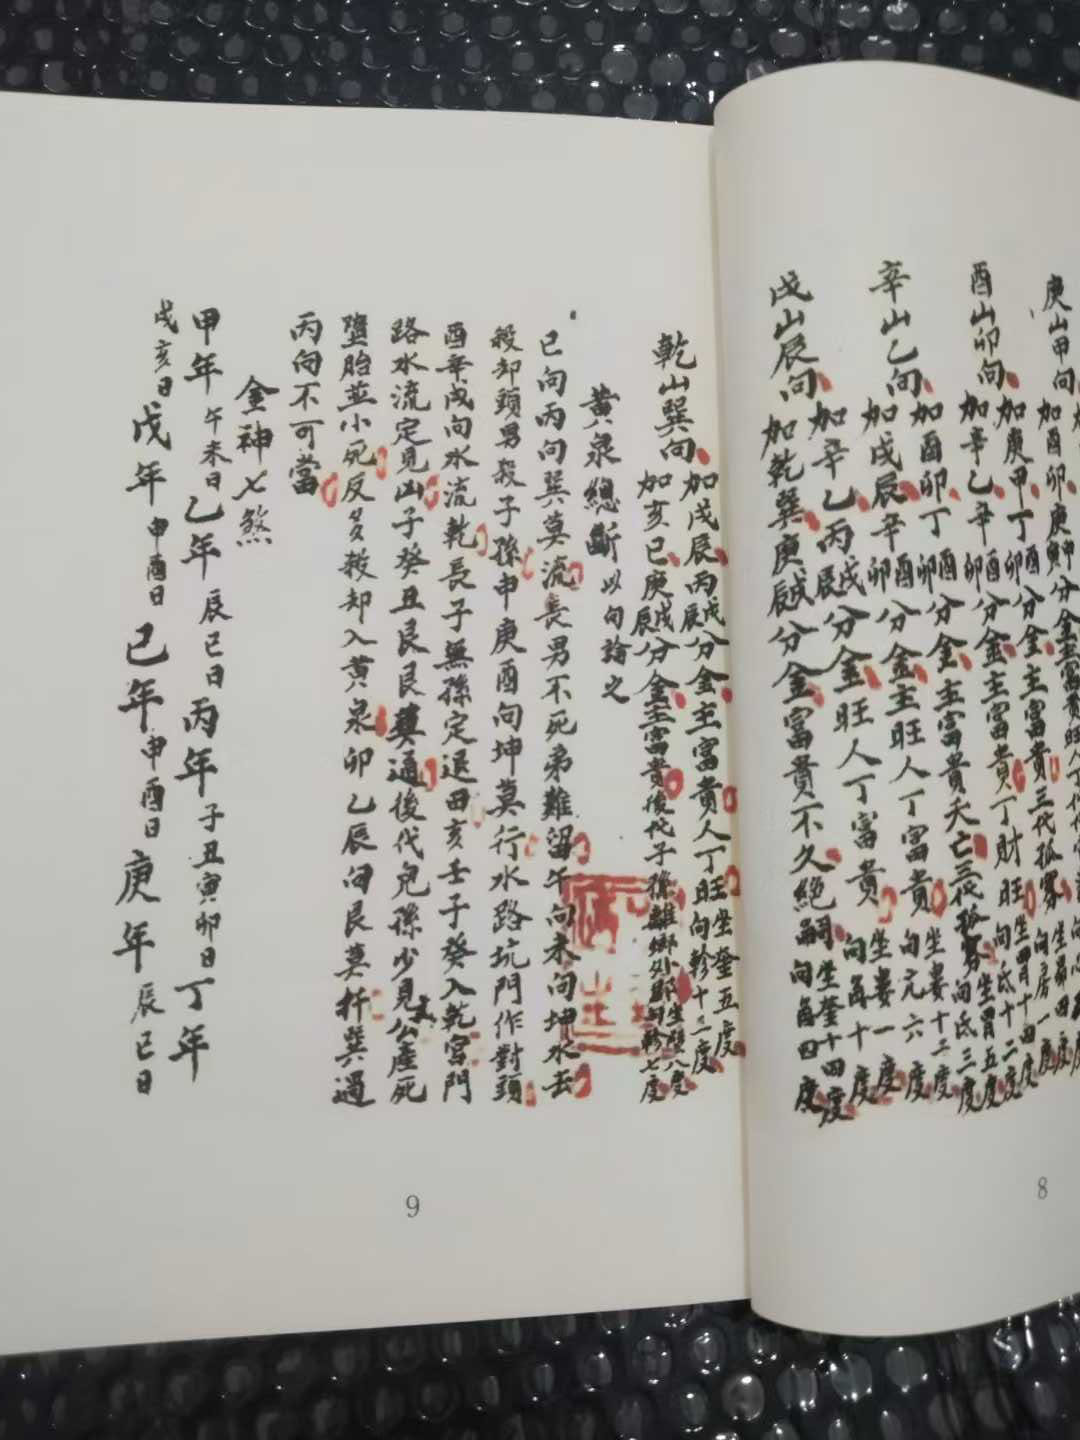 庚山甲向
酉山卯向
加庚甲丁卯酉分金主富貴三代孤寡
加辛乙辛卯酉分金主富貴丁財旺
坐胃五度
向氐三度
辛山乙向
加酉卯丁卯酉分金主富貴夭亡三代孤寡
坐婁十二度
向元六度
加戌辰辛卯酉分金主旺人丁富貴
坐婁一度
向角十度
戌山辰向
加辛乙丙辰戌分金主旺人丁富貴
坐奎十四度
向角四度
加乾巽庚辰戌分金富貴不久絕嗣
8
乾山巽向
加戌辰丙辰戌分金主富貴人丁旺
坐奎五度
向軫十二度
加亥巳庚辰戌分金主富貴後代子孫離鄉外郡
坐壁八度
向軫七度
黃泉總斷以向論之
巳向丙向巽莫流長男不死弟難留午向未向坤水去
殺却頭男殺子孫申庚酉向坤莫行水路坑門作對頭
酉辛戌向水流乾長子無孫定退田亥壬子癸入乾宮門
路水流定見凶子癸丑艮艮莫通後代兒孫少見亡產死
墮胎並小死反多殺却入黃泉卯乙辰向艮莫扦巽過
丙向不可當
金神七煞
甲年午未日乙年辰巳日丙年子丑寅卯日丁年
戌亥日戊年申酉日己年申酉日庚年辰巳日
9